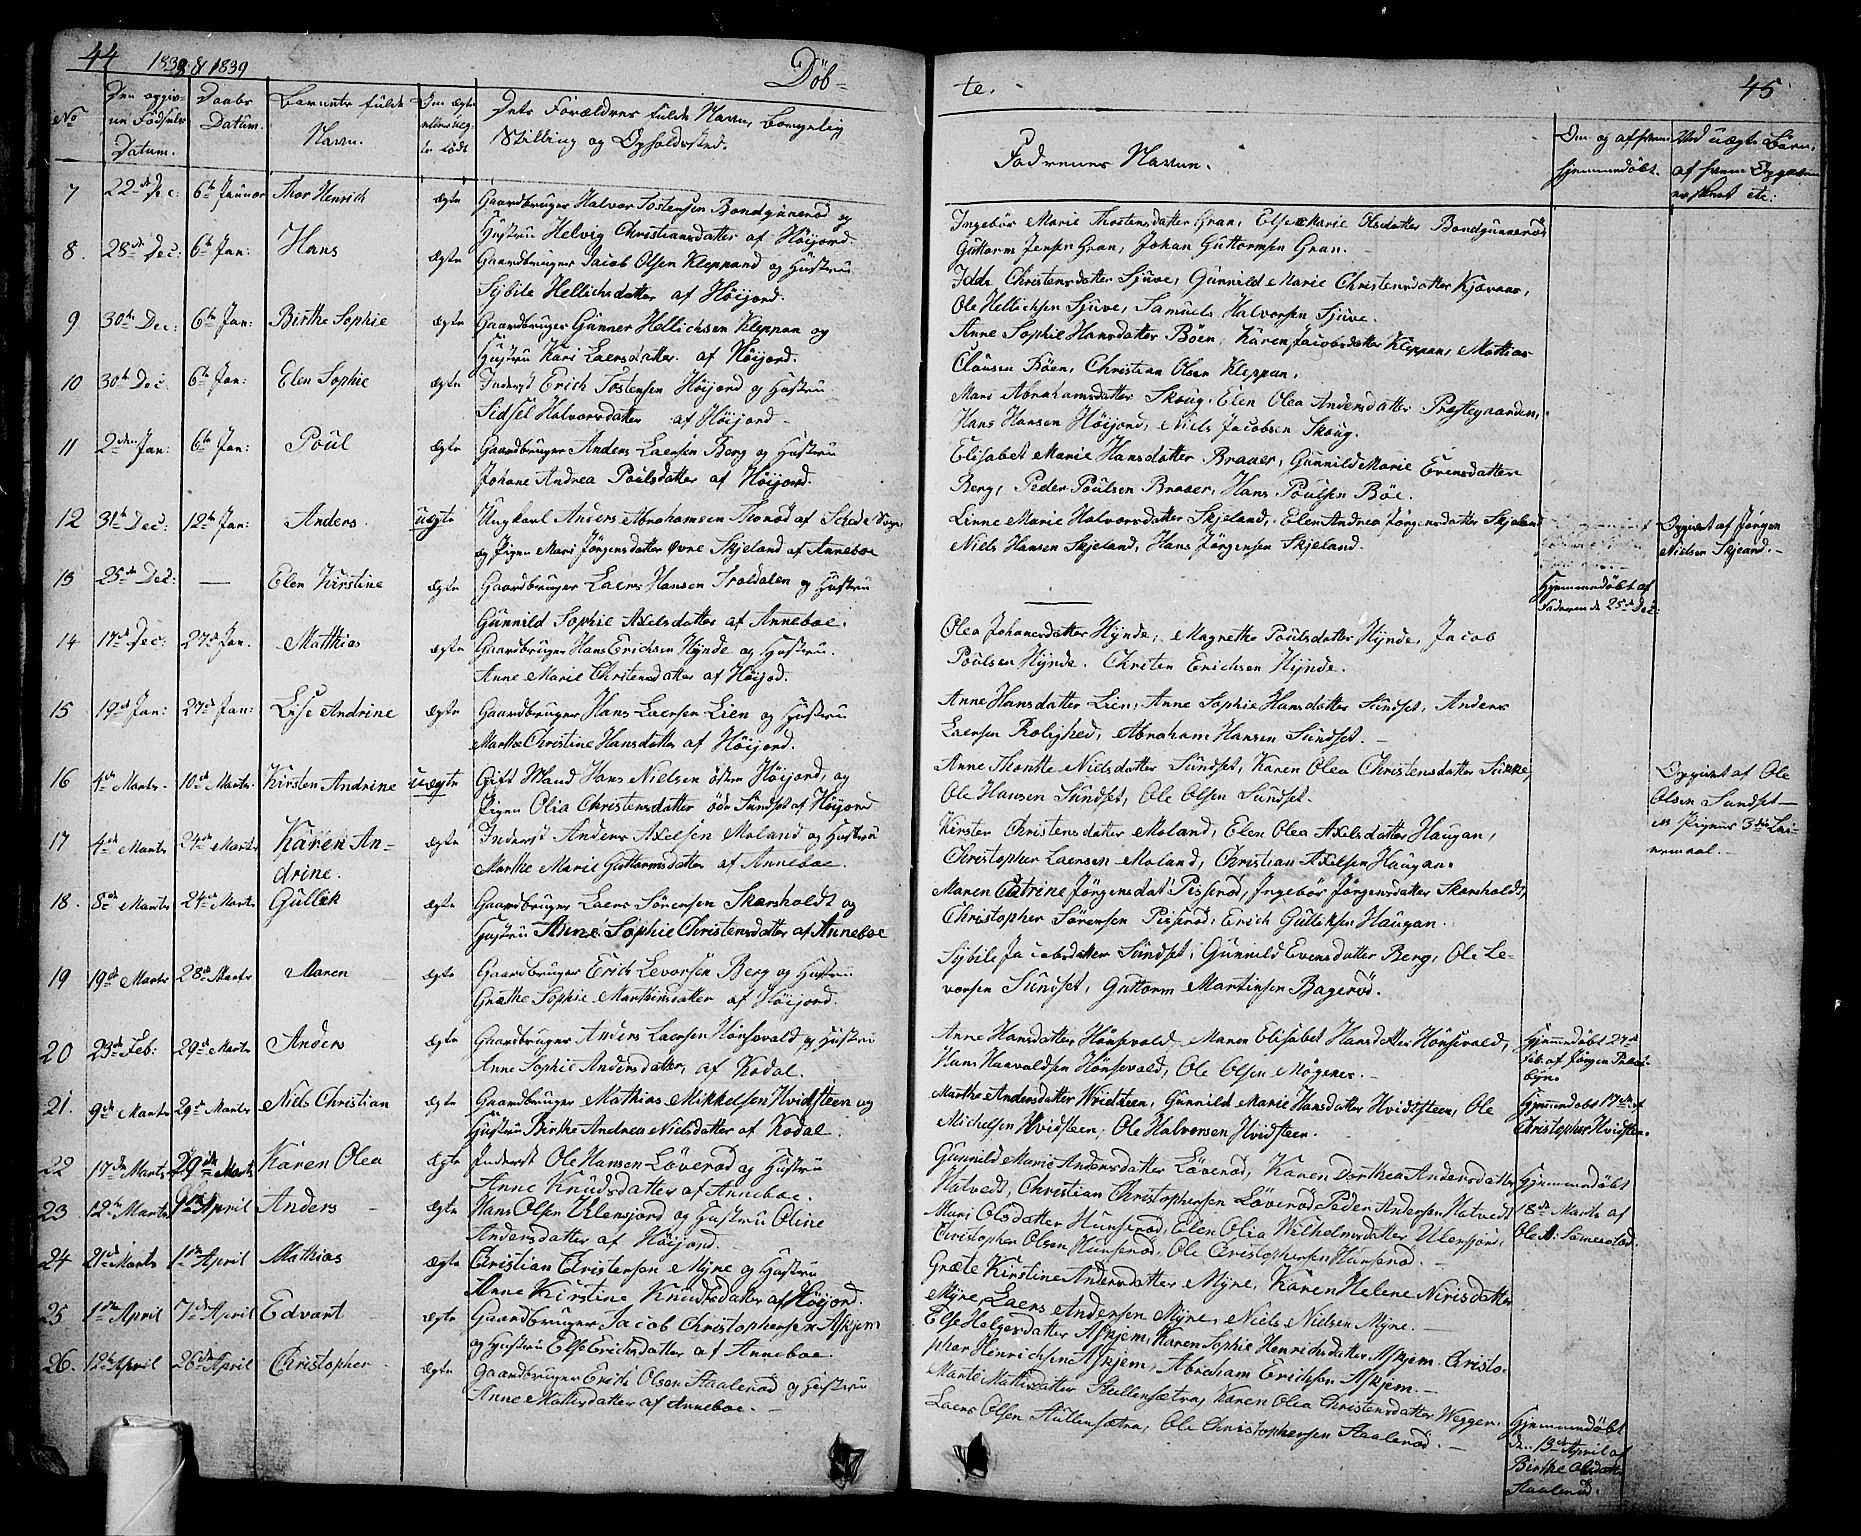 44 1838 & 1839 Döb-
No
Den opgiv-
ne Fødsels
Datum.
Daabs
Datum.
Barnets fulde
Navn.
Om ægte
eller uæg-
te født
Dets Forældres fulde Navn, borgerlig
Stilling og Opholdssted.
7 22de Dec: 6te Januar Thor Henrich ægte Gaardbruger Halvor Tostensen Bondgunnerød og
Hustru Helvig Christiansdatter af Höijord.
8. 28de Dec: 6te Jan: Hans ægte Gaardbruger Jacob Olsen Kleppand og Hustru
Sybile Hellichsdatter af Höijord.
9 30te Dec: 6te Jan: Birthe Sophie ægte Gaardbruger Gunner Hellichsen Kleppan og
Hustru Kari Laersdatter af Höijord.
10 30te Dec. 6te Jan: Elen Sophie ægte Inderst Erich Tostensen Höijord og Hustru
Sidsel Halvorsdatter af Höijord -
11 2den Jan: 6te Jan: Poul ægte Gaardbruger Anders Laersen Berg og Hustru
Johane Andrea Poulsdatter af Höijord.
12 31te Dec: 12te Jan: Anders. uægte Ungkarl Anders Abrahamsen Thorød af Schede Sogn
og Pigen Mari Jörgensdatter Øvre Skjeland af Anneboe
13 25de Dec: — Elen Kirstine ægte Gaardbruger Laers Hansen Troldalen og Hustru
Gunnild Sophie Axelsdatter af Anneboe.
14 17de Dec: 27de Jan. Matthias ægte Gaardbruger Hans Erichsen Hynde og Hustru.
Anne Marie Christensdatter af Höijod.
15 19de Jan: 27de Jan: Lise Andrine ægte Gaardbruger Hans Laersen Lien og Hustru
Marthe Christine Hansdatter af Höijord.
16 4de Marts. 10de Marts. Kirsten Andrine uægte Gift Mand Hans Nielsen östre Höijord, og
Pigen Olia Christensdatter öde Sundset af Höijord
17 4de Marts 24de Marts Karen An-
drine. ægte Inderst Anders Axelsen Moland og Hustru
Marthe Marie Guttormsdatter af Anneboe.
18. 8de Marts 24de Marts Gullik ægte Gaardbruger Laers Sörensen Skarsholdt og
Hustru Anne Sophie Christensdatter af Anneboe
19 19de Marts 28de Marts Maren ægte Gaardbruger Erich Levorsen Berg og Hustru
Grethe Sophie Marthinsdatter af Höijord.
20 23de Feb: 29de Marts Anders ægte Gaardbruger Anders Laersen Hönsevald og Hustru
Anne Sophie Andersdatter, af Kodal.
21. 9de Marts 29de Marts Niels Christian ægte Gaardbruger Mathias Mikkelsen Hvidsteen og
Hustru Birthe Andrea Nielsdatter af Kodal.
22 17de Marts 29de Marts Karen Olea ægte Inderst Ole Hansen Löverød og Hustru
Anne Knudsdatter af Anneboe.
23 12te Marts 1ste April Anders ægte Hans Olsen Ulensjord og Hustru Oline
Andersdatter af Höijord.
24 21de Marts 1ste April Mathias ægte Christian Christensen Myre og Hustru
Anne Kirstine Knudsdatter af Höijord.
25 1ste April 7de April Edvart ægte Gaardbruger Jacob Christophersen Askjem
og Hustru Else Erichsdatter af Anneboe.
26. 12te April 26de April Christopher ægte Gaardbruger Erich Olsen Staalerød og Hustru
Anne Mattisdatter af Anneboe. —
te. 45
Faddernes Navne.
Om og af hvem
hjemmedöbt.
Ved uægte Börn,
af hvem Opgiven
er skeet etc:
Ingebör Marie Thorstensdatter Gran, Else Marie Olsdatter Bondgunnerød
Guttorm Jensen Gran, Johan Guttormsen Gran.
Idde Christensdatter Sjuve, Gunnild Marie Christensdatter Kjæraas,
Ole Hellichsen Sjuve, Samuel Halvorsen Sjuve.
Anne Sophie Hansdatter Böen, Karen Jacobsdatter Kleppan, Mathias
Clausen Böen, Christian Olsen Kleppan.
Mari Abrahamsdatter Skoug, Elen Olea Andersdatter Præstegaarden,
Hans Hansen Höijord, Niels Jacobsen Skoug.
Elisabet Marie Hansdatter Braaer, Gunnild Marie Evensdatter
Berg, Peder Poulsen Braaer, Hans Poulsen Böe.
Linne Marie Halvorsdatter Skjeland, Elen Andrea Jörgensdatter Skjeland
Niels Hansen Skjeland, Hans Jörgensen Skjeland.
Opgivet af Jörgen
Nielsen Skjeand. —
Hjemmedöbt af
Faderen de 25de Dec:
Olea Johansdatter Hynde, Magrethe Poulsdatter Hynde, Jacob
Poulsen Hynde. Christen Erichsen Hynde.
Anne Hansdatter Lien, Anne Sophie Hansdatter Sundset, Anders
Laersen Rolighed, Abraham Hansen Sundset. —
Anne Thorthe Nielsdatter Sundset, Karen Olea Christensdatter Sukke,
Ole Hansen Sundset, Ole Olsen Sundset.
Opgivet af Ole
Olsen Sundset —
er Pigens 3die Lei-
ermaal. —
Kirsten Christensdatter Moland, Elen Olea Axelsdatter Haugan,
Christopher Laersen Moland, Christian Axelsen Haugan.
Maren Catrine Jörgensdat: Pisserød, Ingebör Jörgensdatter Skarsholdt,
Christopher Sörensen Pisserød, Erich Gulliksen Haugan.
Sybile Jacobsdatter Sundset, Gunnild Evensdatter Berg, Ole Le-
vorsen Sundset, Guttorm Martinsen Bagerød.
Anne Hansdatter Hönsevald Maren Elisabet Hansdatter Hönsevald,
Hans Haavaldsen Hönsevald, Ole Olsen Mögener. —
Hjemmedöbt 27de
feb: af Jörgen Preste-
byen
Marthe Andersdatter Hvidsteen, Gunnild Marie Hansdatter Hvidtsteen, Ole
Michelsen Hvidsteen, Ole Halvorsen Hvidsteen. —
Hjemmedöbt 17de af
Christopher Hvidsteen.
Gunnild Marie Andersdatter Löverød, Karen Dorthea Andersdatter
Hatvedt, Christian Christophersen Löverød Peder Andersen Hatvedt
Hjemmedöbt
18de Marts af
Ole A: Sömerstad.
Mari Olsdatter Hunserød, Elen Olia Wilhelmsdatter Ulensjord,
Christopher Olsen Hunserød, Ole Christophersen Hunserød. —
Græte Kirstine Andersdatter Myre, Karen Helene Nirisdatter
Myre, Laers Andersen Myre, Niels Nielsen Myre. —
Else Helgesdatter Askjem, Karen Sophie Henrichsdatter Askjem. Christo-
pher Henrichsen Askjem, Abraham Erichsen Askjem. —
Marte Mattisdatter Stullensætra, Karen Olea Christensdatter Wegger,
Laers Olsen Stullensætra, Ole Christophersen Staalerød. —
Hjemmedöbt
den 13de April af
Birthe Olsdatter
Staalerød.